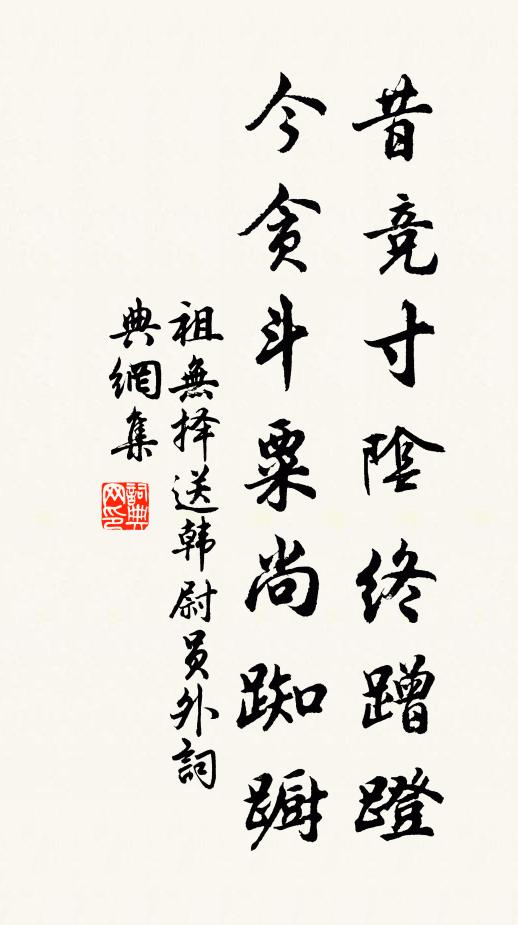 昔竞寸陰终蹭蹬
今贪斗粟尚踟蹰
祖無择送韩尉员外詞
典網集
詞典网印